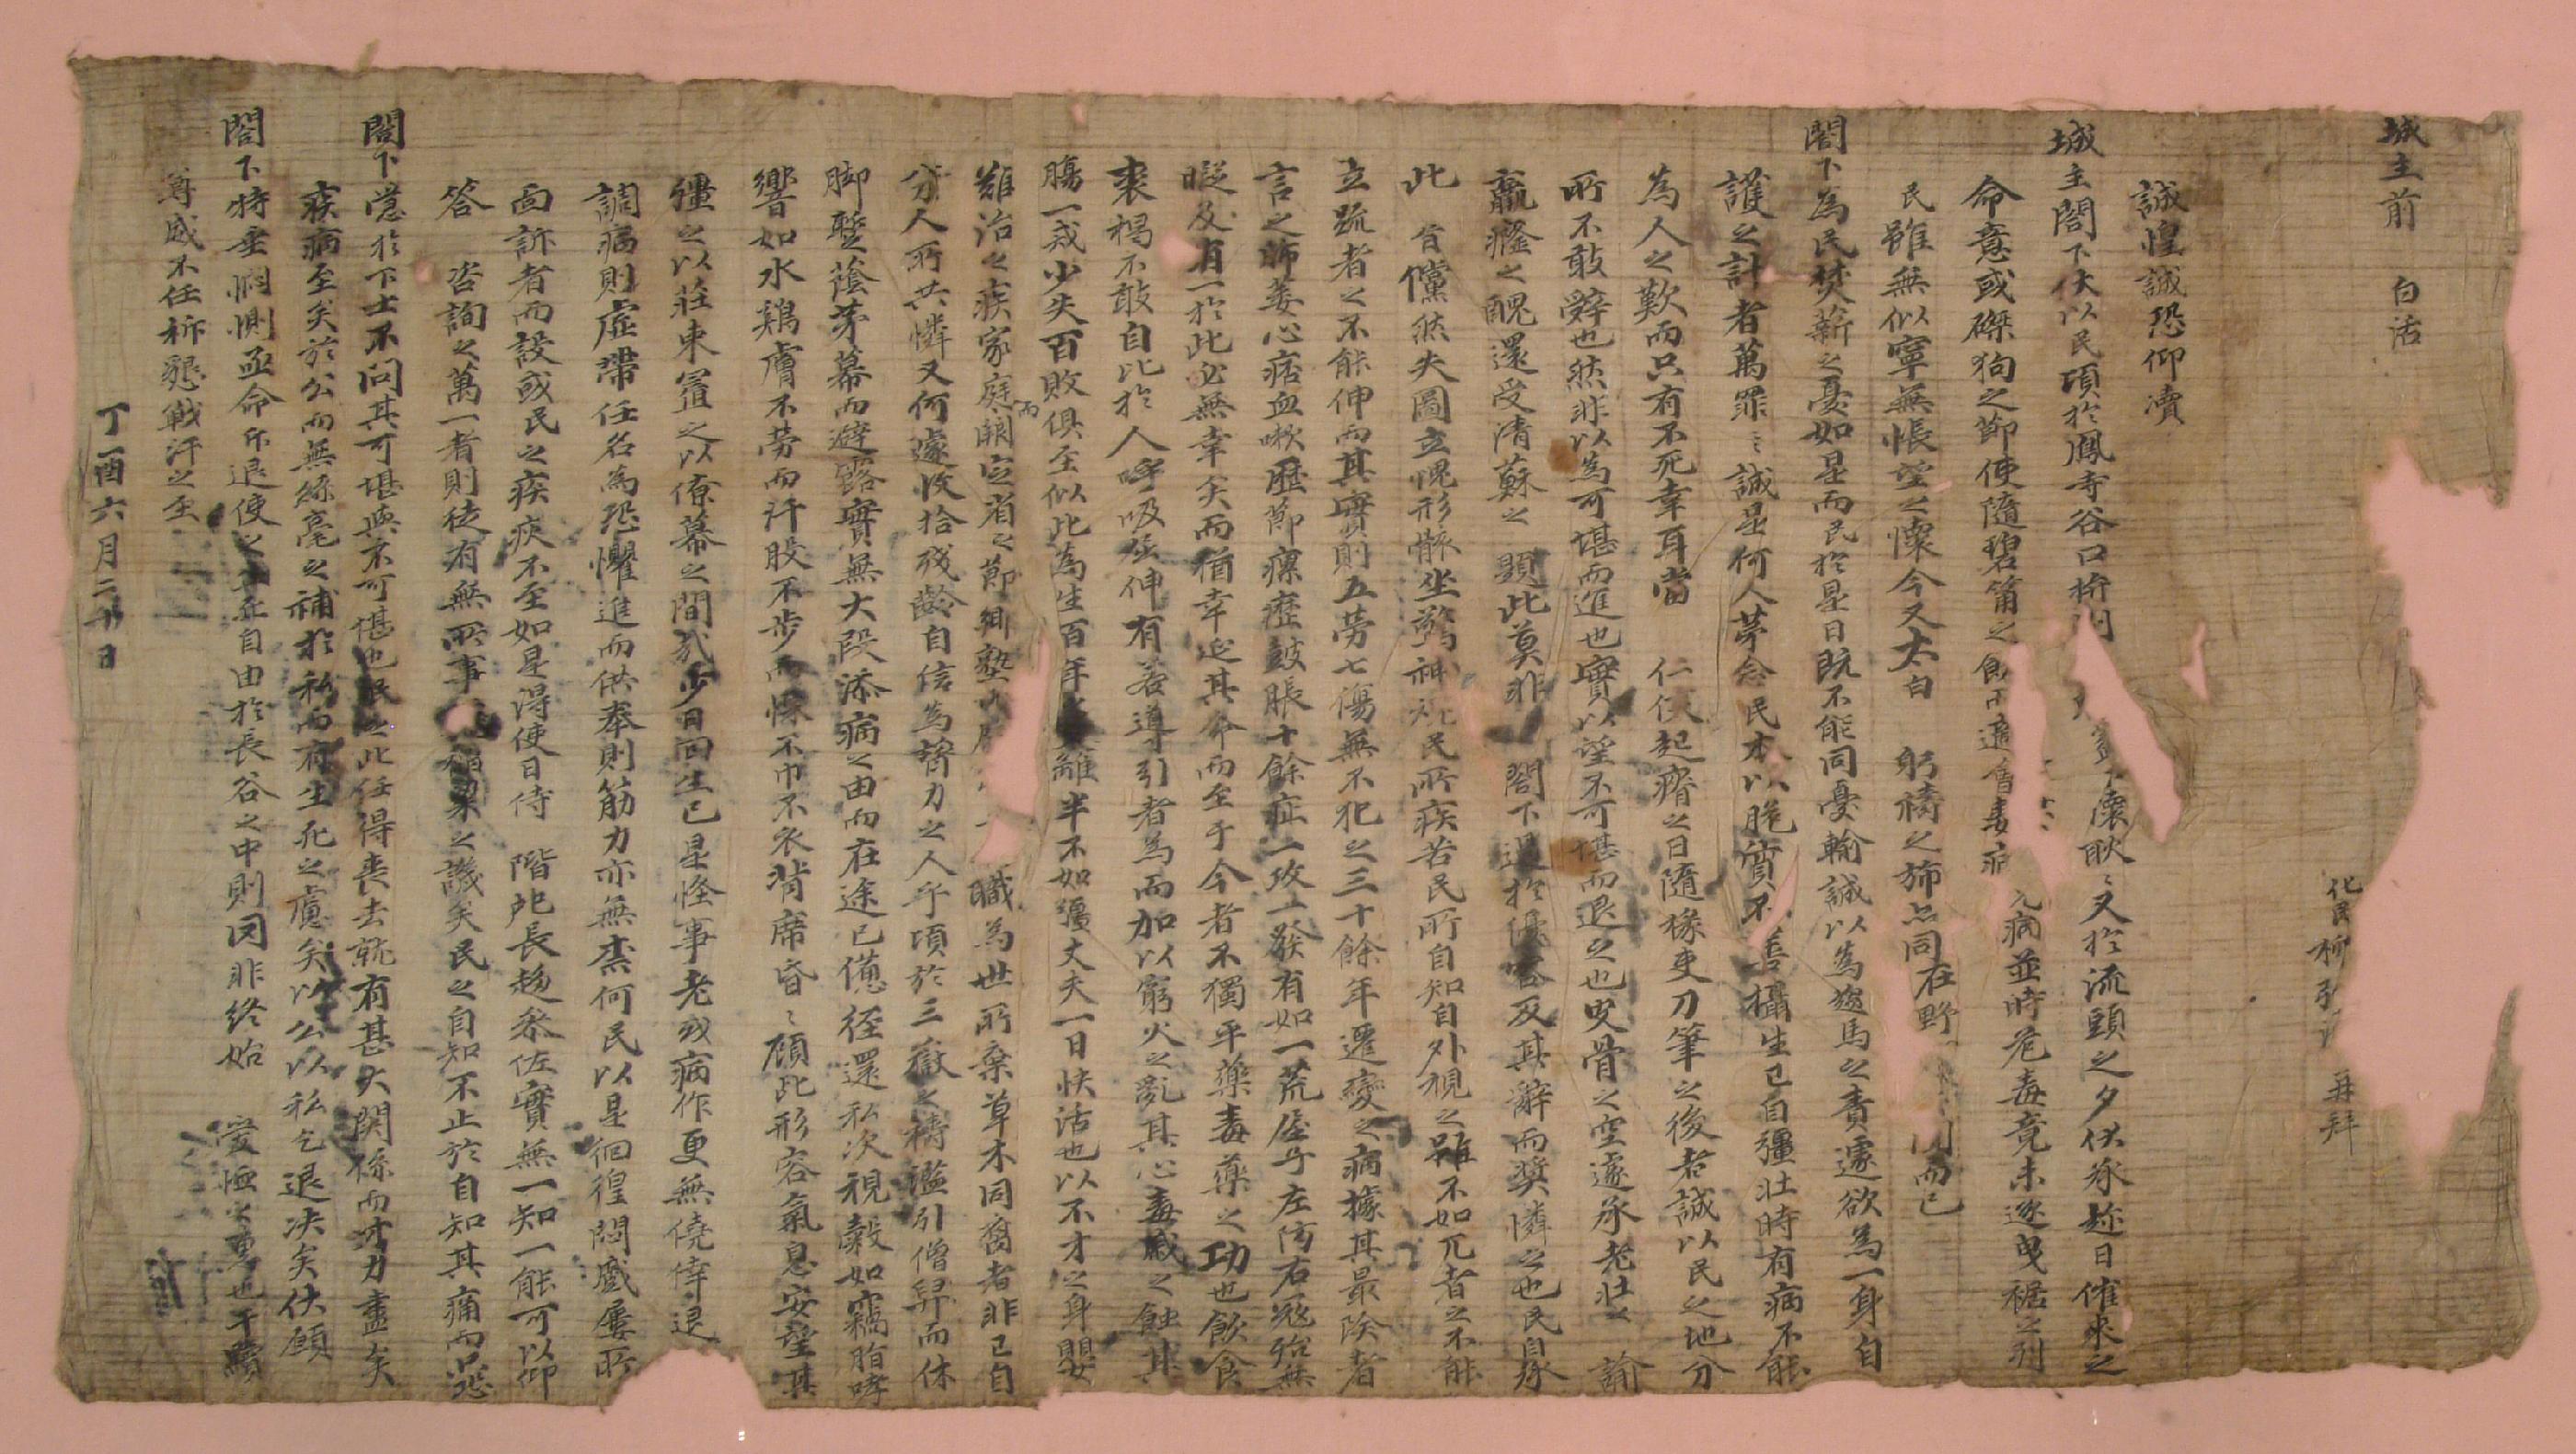 城主前 白活
化民柳 再拜
誠惶誠恐仰凟
城主閤下伏以民頃於鳳寺谷口 懷耿〻又於流頭之夕伏承趂日催來之
命意或磔狗之節使隨碧筩之飮 病並時危毒竟未遂曳裾之列
民雖無似寧無悵望之懷今又太白 躬禱之旆亦同在野 而已
閤下為民焚薪之憂如是而民於是日既不能同憂輸誠以為 馬之責遽欲為一身自
護之計者萬罪〻誠是何人夢念民本以脆質不善攝生已自彊壯時有病不能
為人之歎而只有不死幸耳當 仁侯起瘠之日隨椽吏刀筆之後者誠以民之地分
所不敢辭也然非以為可堪而進也實以望不可堪而退之也 骨之空遽承老壯之 諭
羸癃之醜還受清蘇之 題此莫非 閤下過於優容反其辭而奬憐之也民自承
此 旨儻然失圖立愧形骸坐驚神 民所疾苦民所自知自外視之雖不如兀者之不能
立䟽者之不能伸而其實則五勞七傷無不犯之三十餘年遷變之病據其最險者
言之肺萎心痞血嗽歷節瘰癧皷脹十餘症一攻一發有如一荒屋乎左傍右冦殆無
暇及有一於此必無幸矣而猶幸延其命而至于今者不獨平藥毒藥之功也飮食
裘褐不敢自比於人呼吸屈伸有若導引者為而加以窮火之亂其心毒 之蝕其
膓一戒少失百敗俱至似此為生百年 離半不如彊丈夫一日快活也以不才之身嬰
難治之疾家庭而闕定省之節鄉塾 職為世所棄草木同腐者非已自
分人所共憐又何遽收拾殘齡自信為膂力之人乎頃於三嶽之禱濫引僧舁而休
脚蹔蔭茅幕而避露實無大段添病之由而在途已憊径還私次視穀如竊脂哮
響如水鷄膚不勞而汗股不步而 不巾不衣 席昏〻顧此形容氣息安望其
彊之以莊束置之以僚幕之間 少日回生已是怪事老 病作更無僥倖退
調病則虛帶任名為恐懼進而供奉則筋力亦無柰何民以是徊徨悶蹙屢所
面訴者而設或民之疾疢不至如是得使日侍 階戺長趨叅佐實無一知一能可以仰
答 咨詢之萬一者則徒有無所事 之譏矣民之自知不止於自知其痛而 
閤下 於下士不問其可堪與不可堪也民之此任得喪去就有甚大關係而才力盡矣
疾病至矣於公而無絲毫之補於私而有生死之慮矣以公以私乞退決矣伏願
閤下特垂憫惻亟命斥退使之 自由於長谷之中則罔非終始 愛恤之 也干黷
尊威不任祈懇戰汗之至
丁酉六月二十日